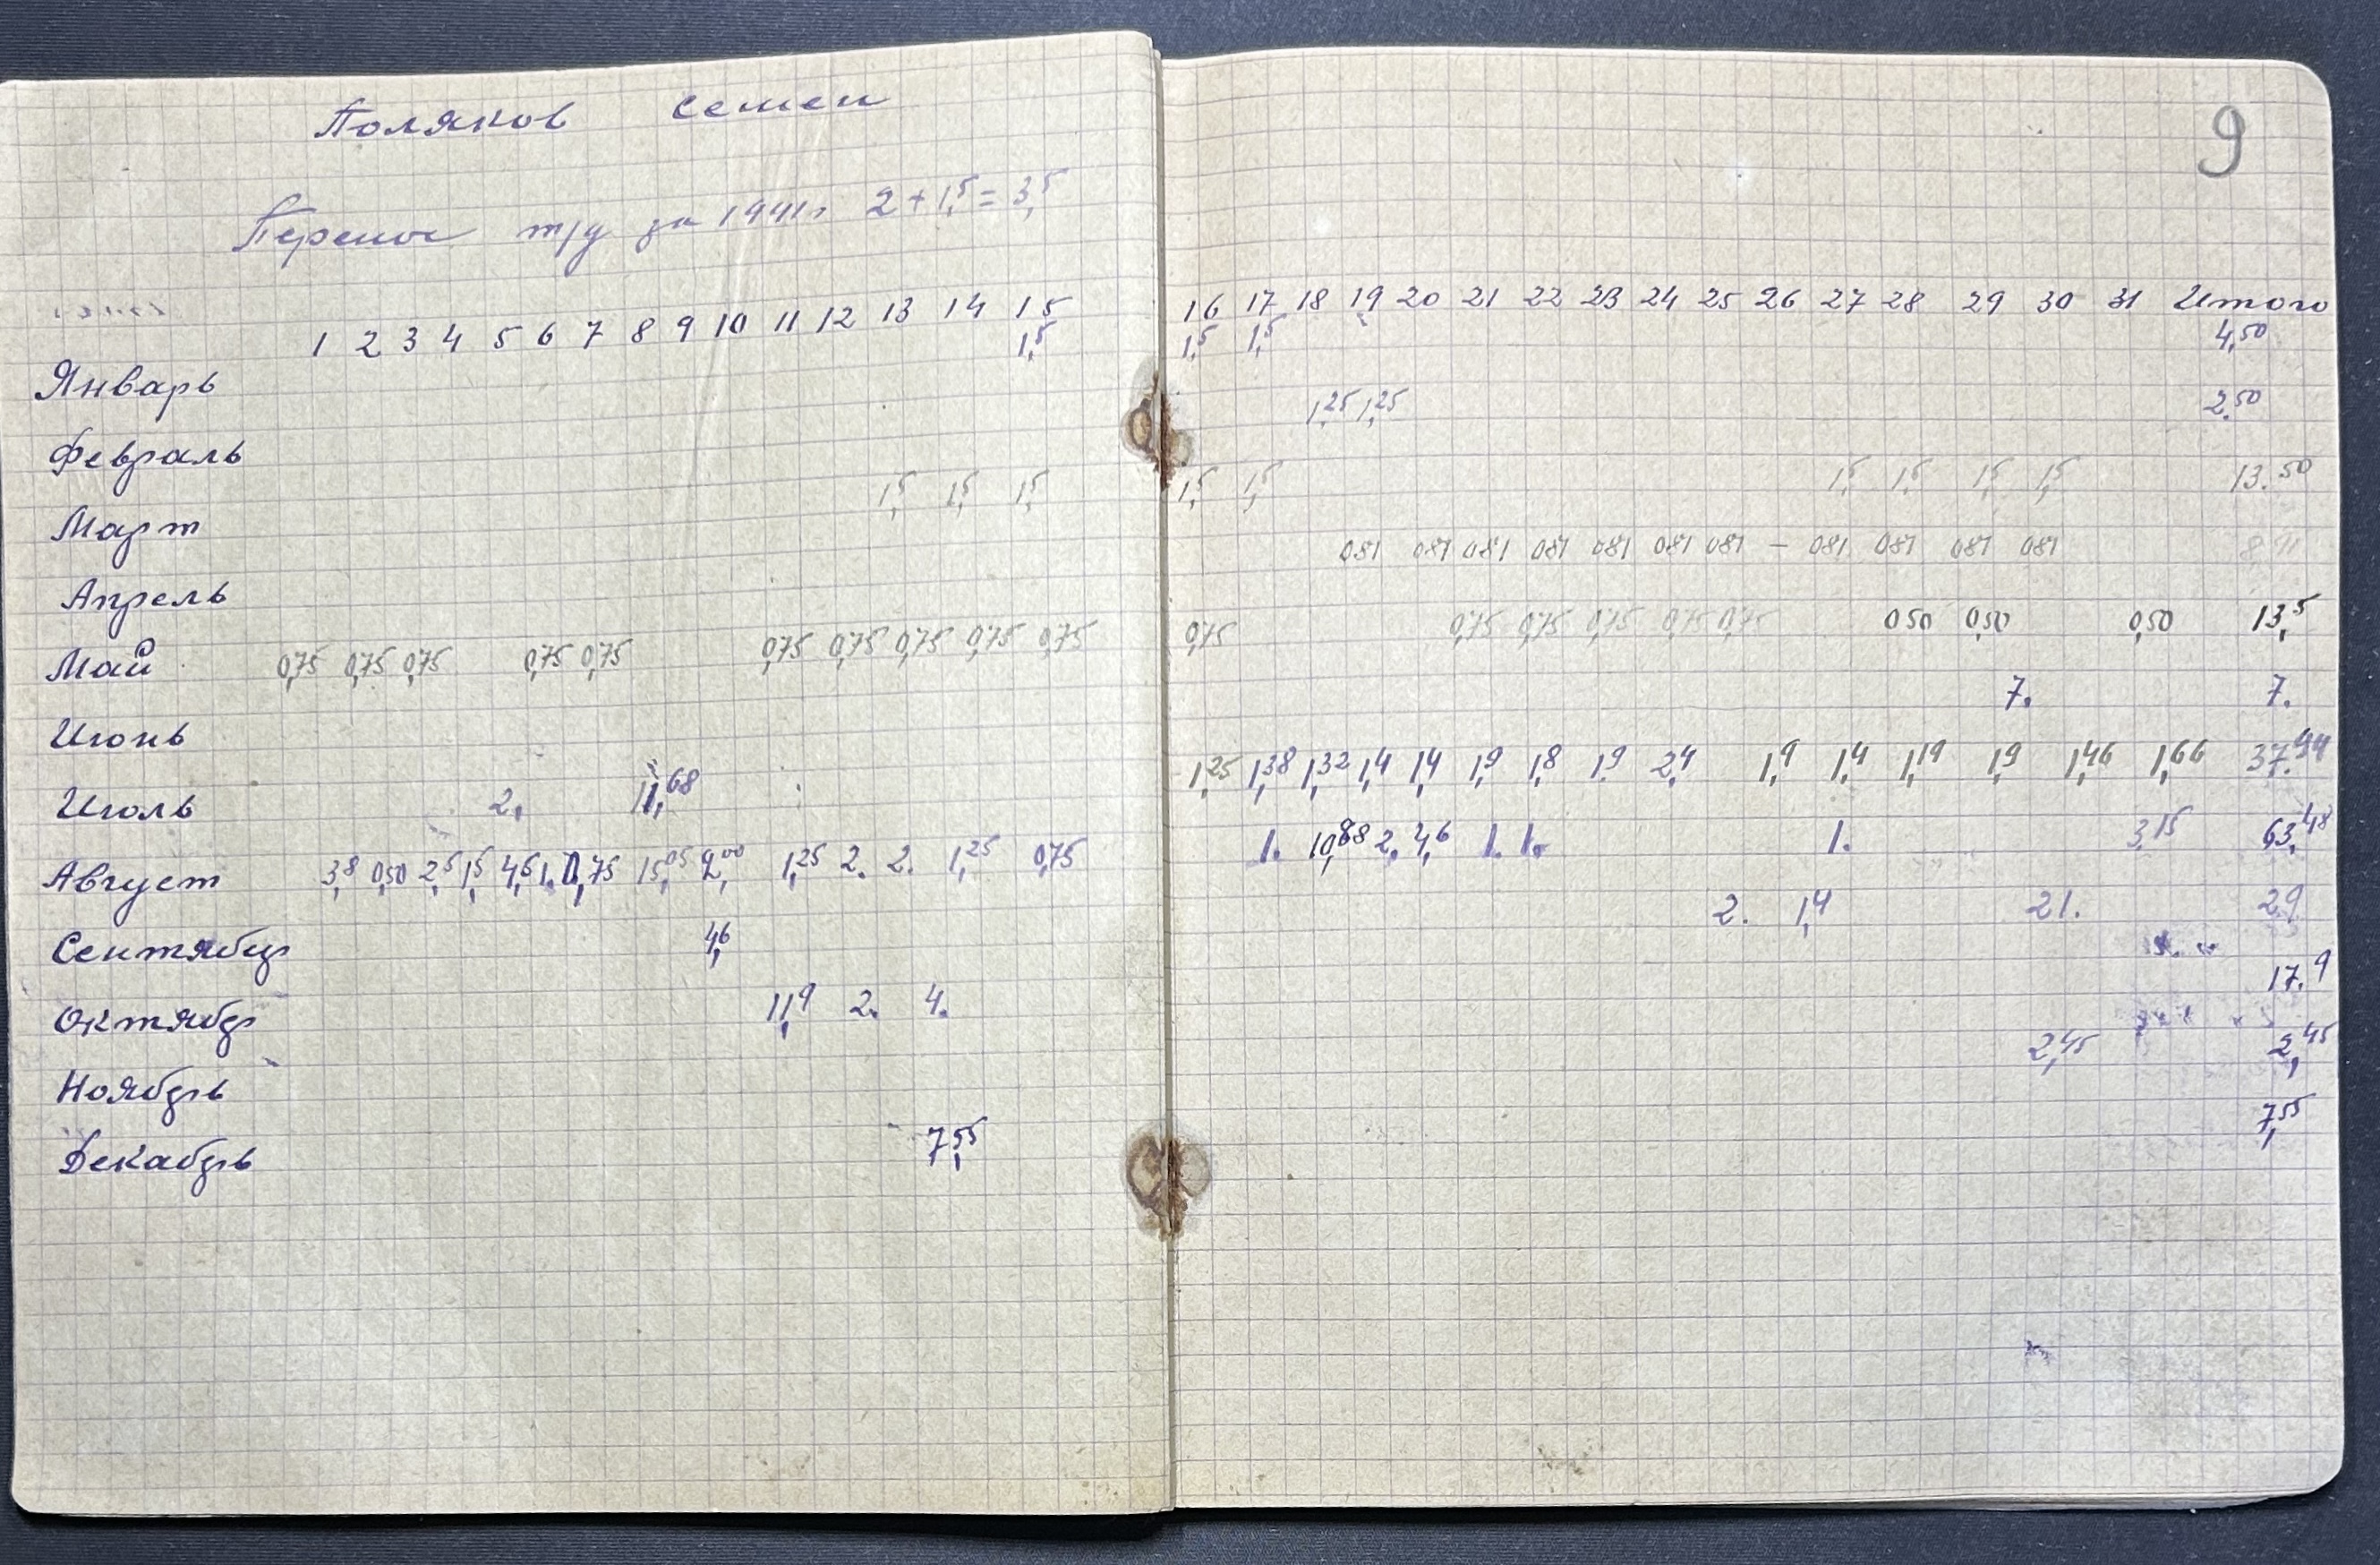 Поляков Семен
9
Перенос т/д за 1941г 2 + 1,5 = 3,5
1 2 3 4 5 6 7 8 9 10 11 12 13 14 15 16 17 18 19 20 21 22 23 24 25 26 27 28 29 30 31 Итого
Январь 1,5 1,5 1,5 4,50
Февраль 1,25 1,25 2.50
Март 1,5 1,5 1,5 1,5 1,5 1,5 1,5 1,5 1,5 13.50
Апрель 081 081 081 081 081 081 081 – 081 081 081 081 8,91
Май 0,75 0,75 0,75 0,75 0,75 0,75 0,75 0,75 0,75 0,75 0,75 0,75 0,75 0,75 0,75 0,75 050 0,50 0,50 13,5
Июнь 7. 7.
Июль 2. 11,68 1,25 1,38 1,32 1,4 1,4 1,9 1,8 1,9 2,4 1,9 1,4 1,19 1,9 1,46 1,66 37.94
Август 3,8 0,50 2,5 1,5 4,6 1. 0,75 15,05 2,00 1,25 2. 2. 1,25 0,75 1. 10,88 2. 4,6 1. 1. 1. 3,15 63,48
Сентябр 4,6 2. 1,4 21. 29
Октябрь 11,9 2. 4. 17.9
Ноябрь 2,45 2,45
Декабрь 7,55 7,55